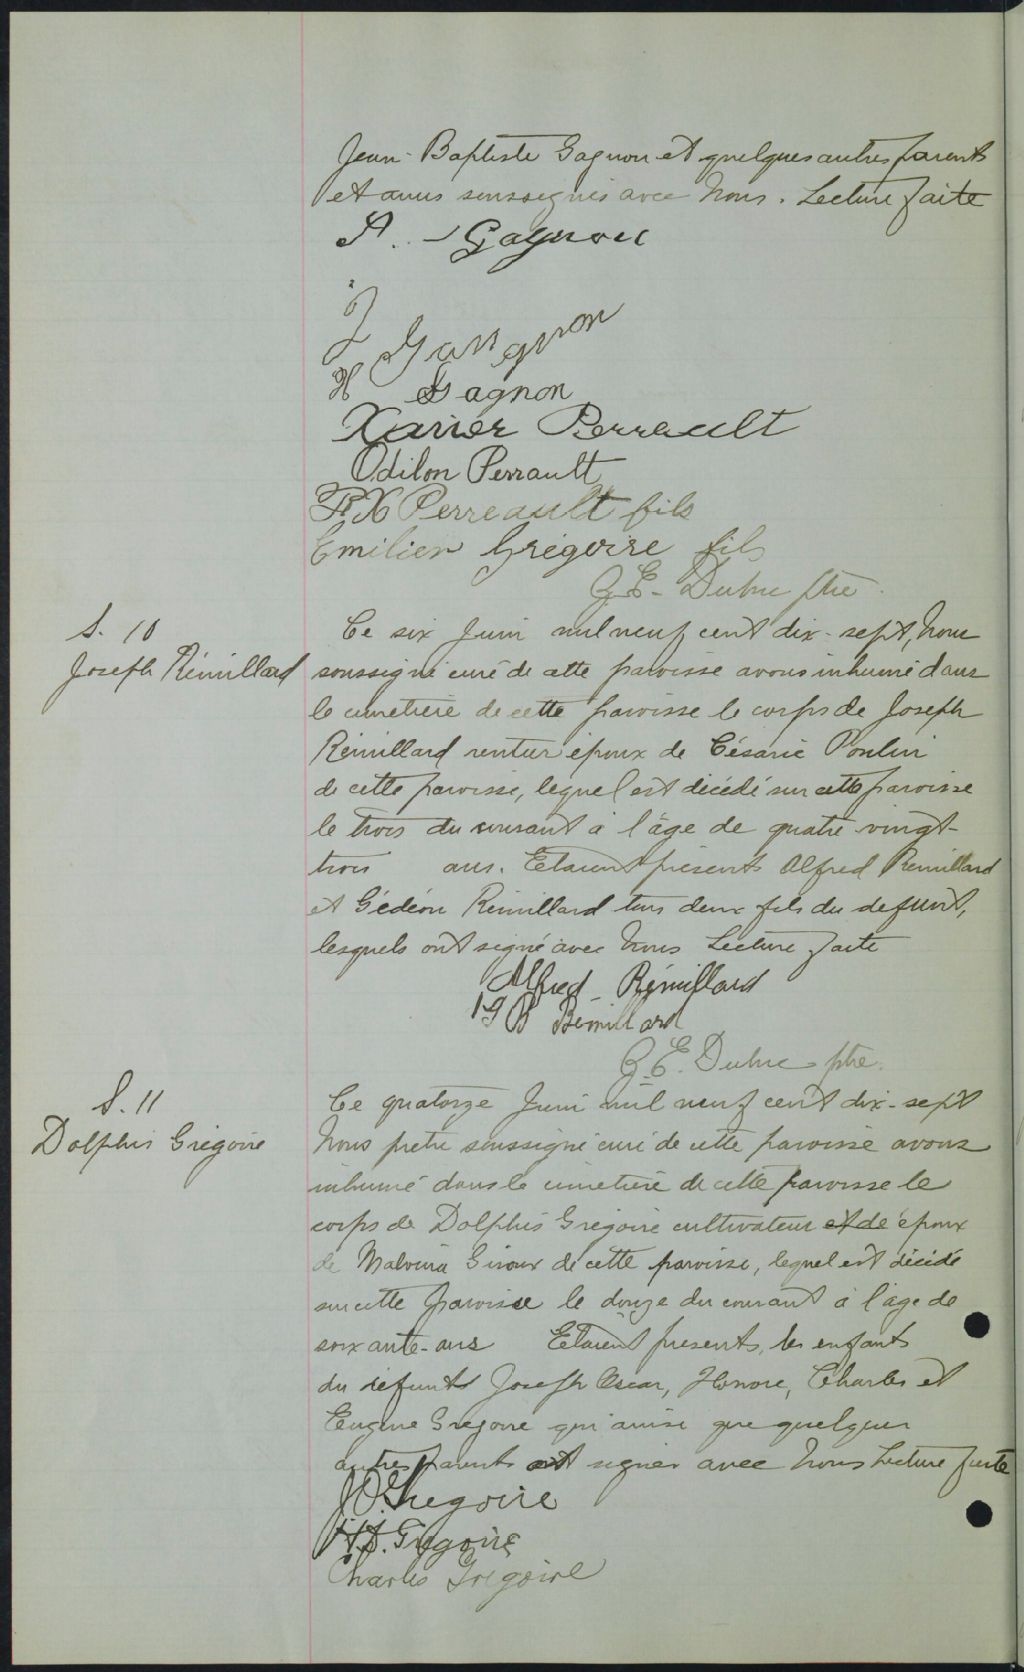 Jean-Baptiste Gagnon et quelques autres parents
et amis soussignés avec Nous. Lecture faite
A. Gagnon
J Gangnon
H Gagnon
Xavier Perreault
Odilon Perrault
F X Perreault fils
Emilien Grégoire fils
G. E. Dubuc ptre.
S. 10
Joseph Rémillard
Ce six Juin mil neuf cent dix-sept, Nous
soussigné curé de cette paroisse avons inhumé dans
le cimetière de cette paroisse le corps de Joseph
Rémillard rentier époux de Césarie Poulin
de cette paroisse, lequel est décédé sur cette paroisse
le trois du courant à l'âge de quatre-vingt-
trois ans. Etaient présents Alfred Rémillard
et Gédéon Rémillard tous deux fils du defunt,
lesquels ont signé avec Nous Lecture faite
Alfred Rémillard
Rémillard
G. E. Dubuc ptre.
S. 11
Dolphis Grégoire
Ce quatorze Juin mil neuf cent dix-sept
Nous prêtre soussigné curé de cette paroisse avons
inhumé dans le cimetière de cette paroisse le
corps de Dolphis Grégoire cultivateur et de époux
de Malvina Giroux de cette paroisse, lequel est décédé
sur cette paroisse le douze du courant à l'âge de
soixante-ans Etaient présents, les enfants
du défunt Joseph Oscar, Honoré, Charles et
Eugène Grégoire qui ainsi que quelques
autres parents ont signer avec Nous Lecture faite
J.O. Gregoire
Grégoire
Charles Grégoire